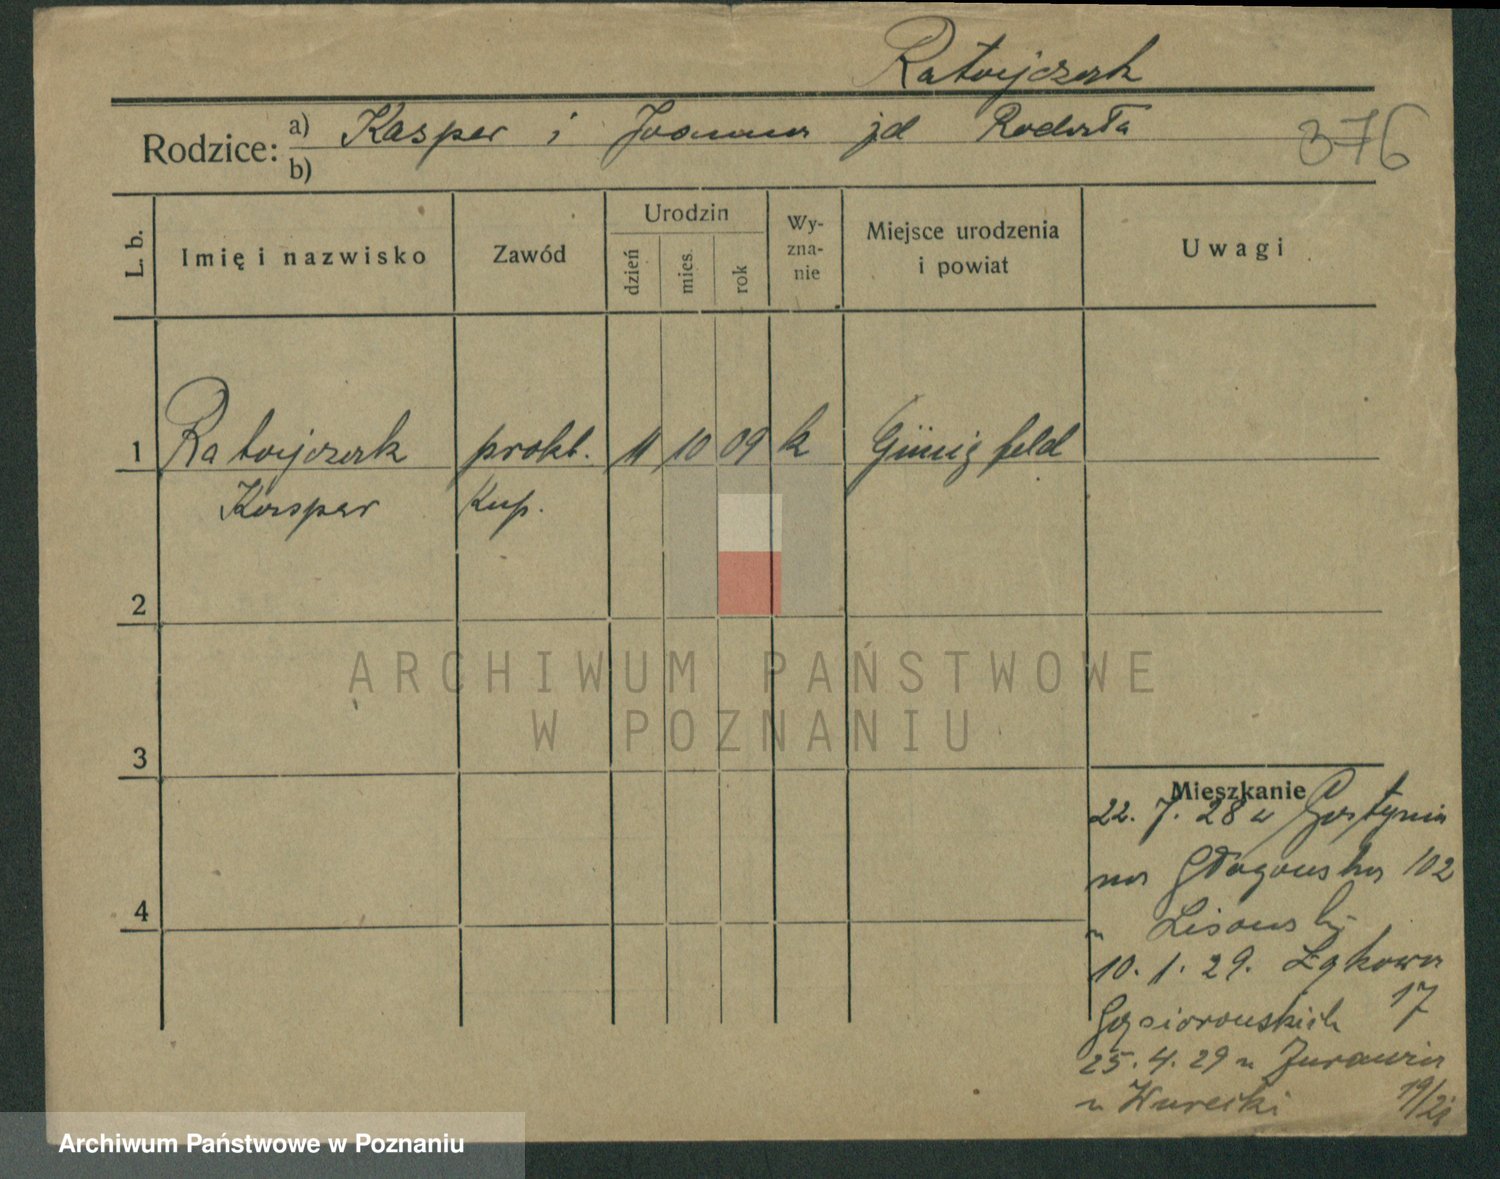 Ratajczak
Rodzice: a) Kasper i Joanna zd Radoła
b)
376
L. b.
Imię i nazwisko
Zawód
Urodzin
dzień
mies.
rok
Wy-
zna-
nie
Miejsce urodzenia
i powiat
Uwagi
1
Ratajczak prakt. 11 10 09 k
Kasper Kup.
2
3
4
Mieszkanie
22. 7. 28 z Gostynia
na Głogowska 102
Lisowski
10. 1. 29. Łąkowa
Gąsiorowskich 17
25. 4. 29 Żurawia
u Wurecki 19/21
ARCHIWUM PAŃSTWOWE
W POZNANIU
Archiwum Państwowe w Poznaniu